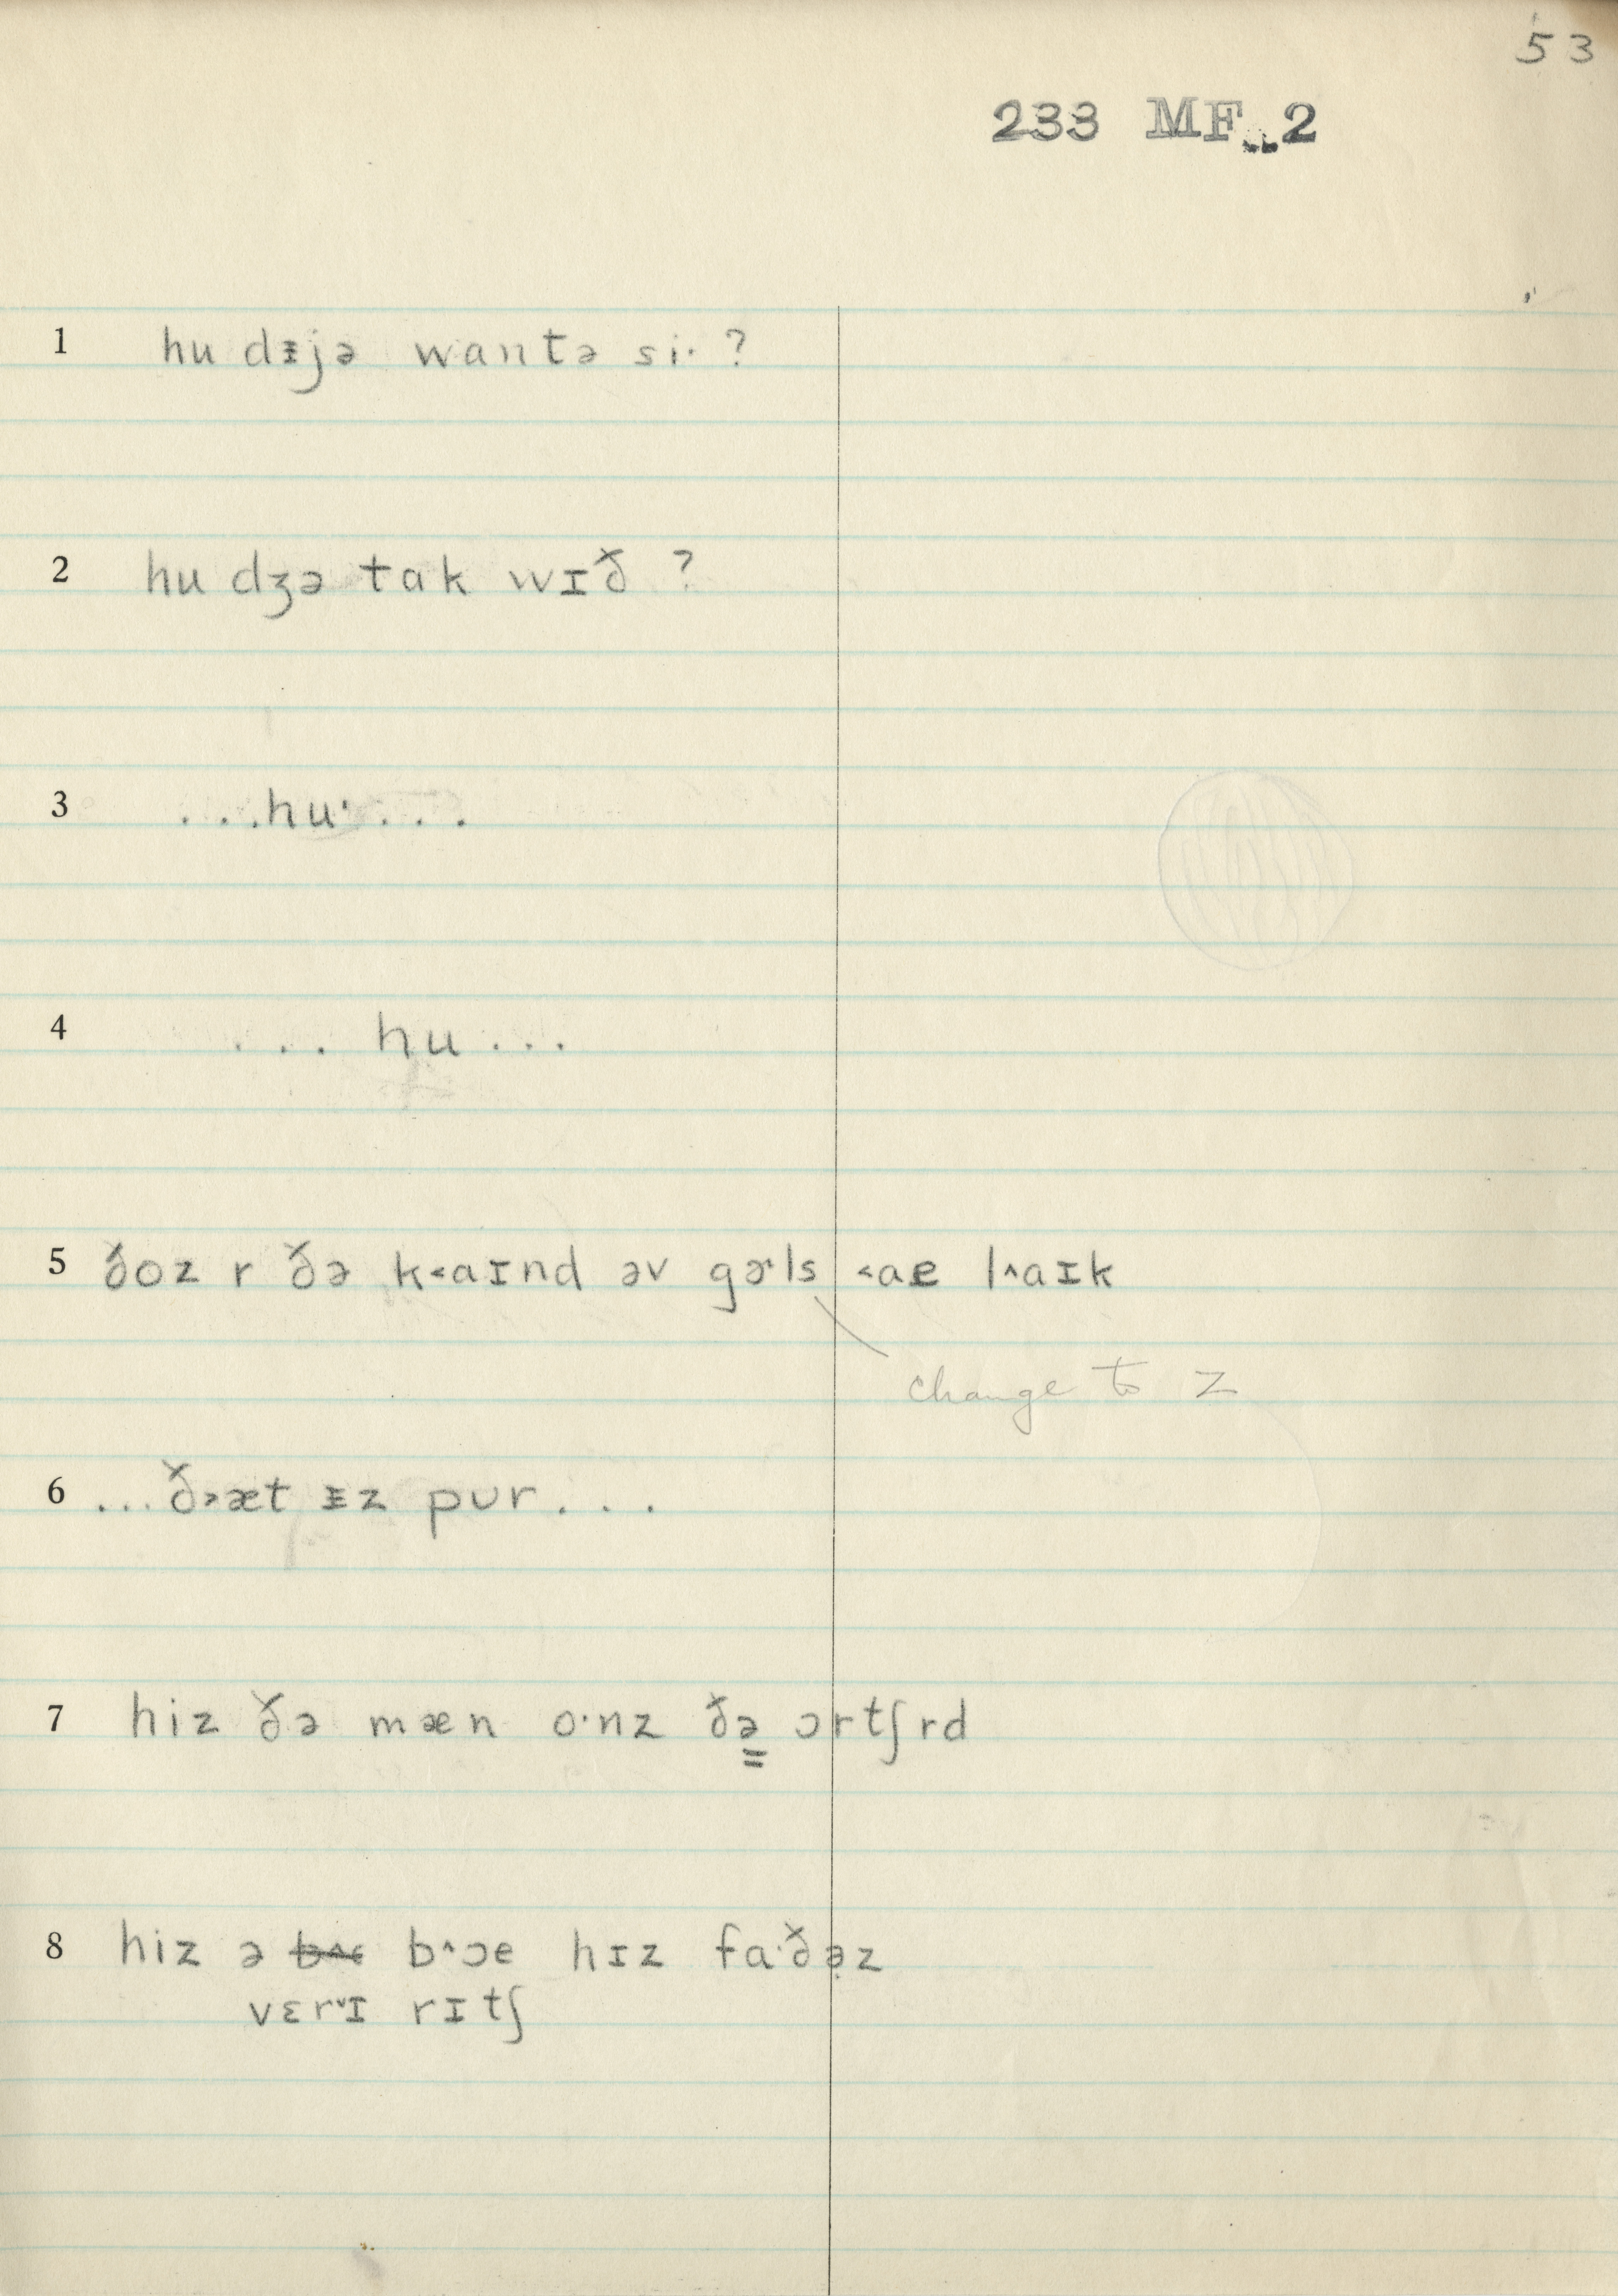 53
233 MF 2
1 hu dᵻjə wantə si· ?
2 hu dʒə tak wɪð ?
3 ...hu·...
4 ... hu ...
5 ðoz r ðə k˂aɪnd əv gɚls ˂ae l˄aɪk
change to z
6 ...ð˃æt ᵻz pʊr...
7 hiz ðə mæn o·nz ðə̳ ɔrtʃrd
8 hiz ə b˄ɔe hɪz fa·ðə̣z
vɛr˅ɪ rɪtʃ